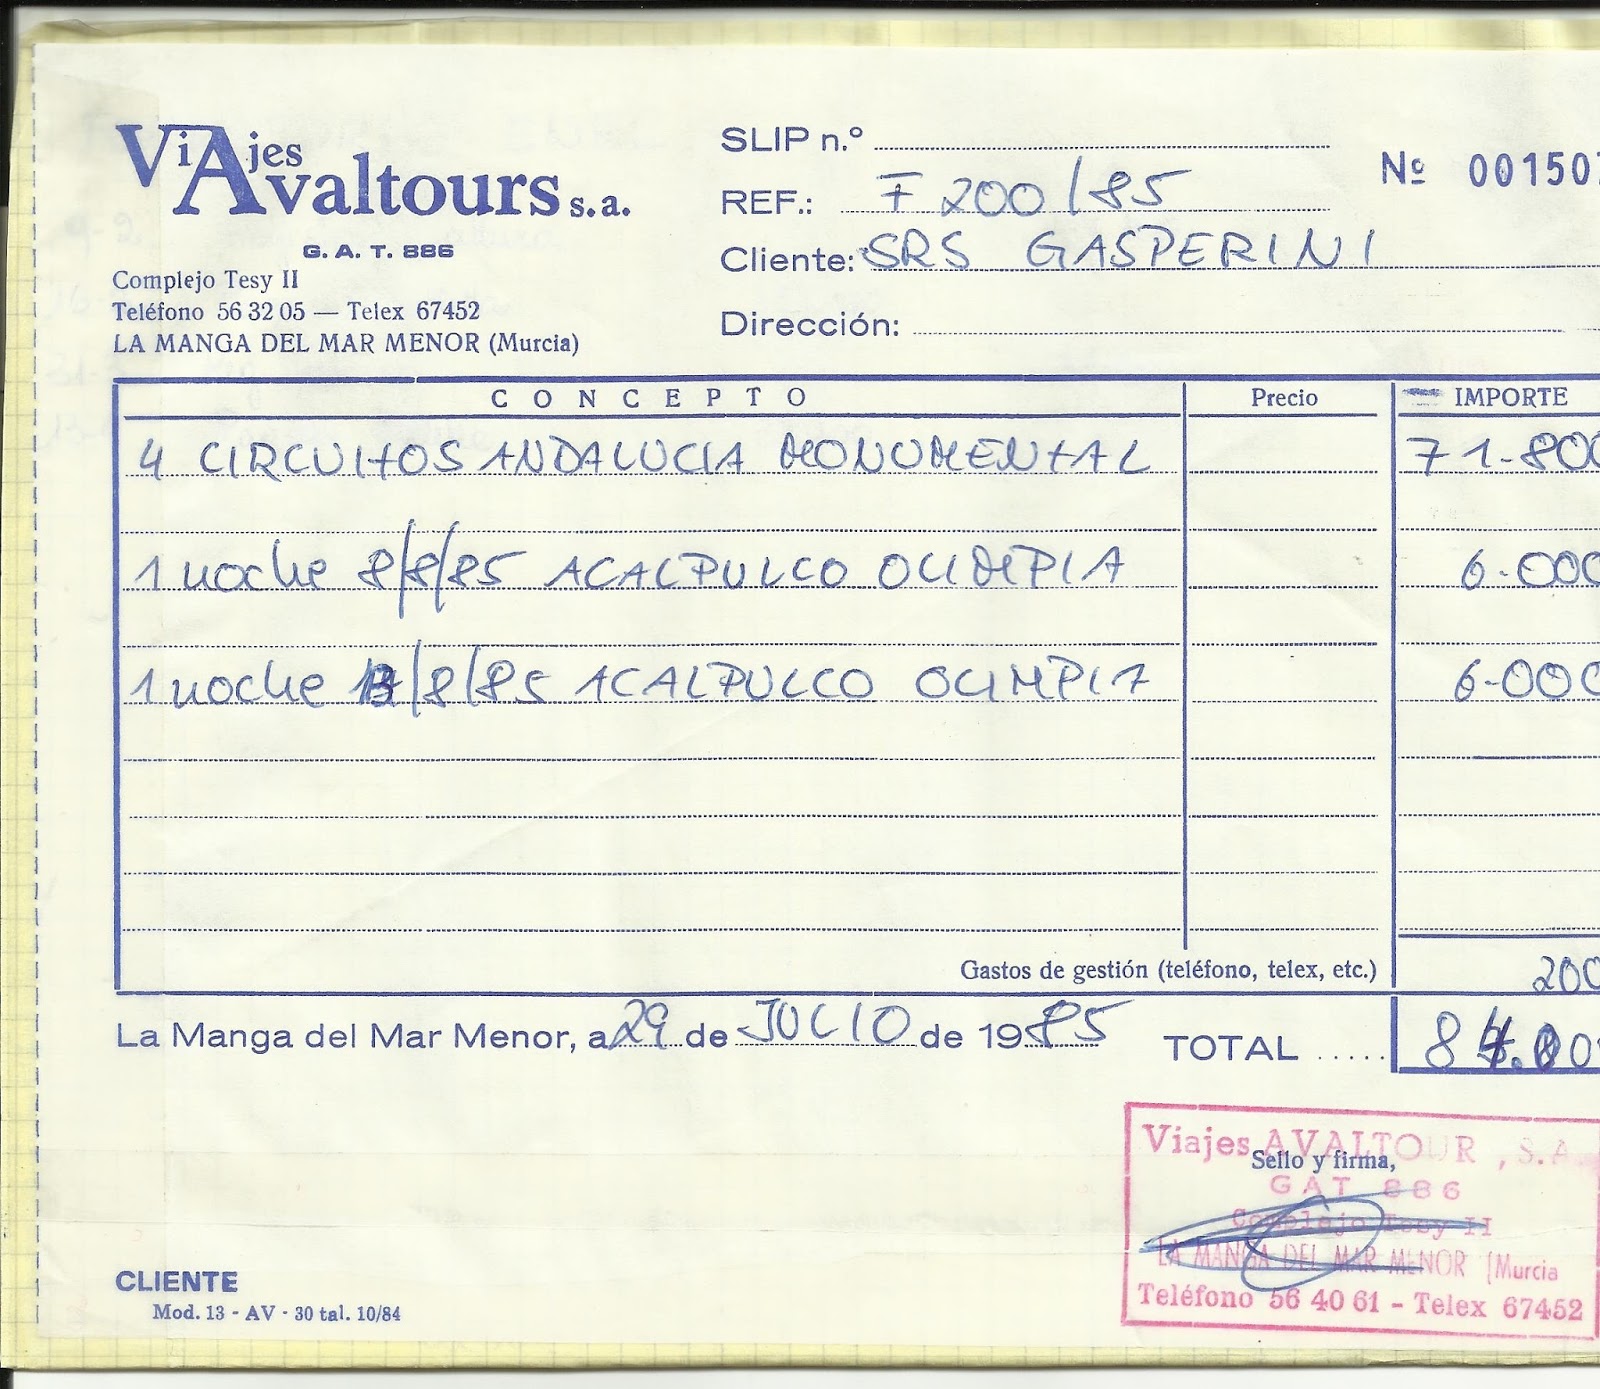 ViAjes
Avaltours s.a.
G. A. T. 886
Complejo Tesy II
Teléfono 56 32 05 — Telex 67452
LA MANGA DEL MAR MENOR (Murcia)
SLIP n.º
REF.: F 200/85
Nº 001507
Cliente: SRS GASPERINI
Dirección:
CONCEPTO Precio IMPORTE
4 CIRCUITOS ANDALUCIA MONUMENTAL 71-800
1 noche 8/8/85 ACALPULCO OLIMPIA 6-000
1 noche 13/8/85 ACALPULCO OLIMPIA 6-000
Gastos de gestión (teléfono, telex, etc.) 200
La Manga del Mar Menor, a 29 de JULIO de 1985 TOTAL .....
Viajes AVALTOUR , S.A.
Sello y firma,
GAT 886
Complejo Tesy II
LA MANGA DEL MAR MENOR (Murcia
Teléfono 56 40 61 - Telex 67452
CLIENTE
Mod. 13 - AV - 30 tal. 10/84